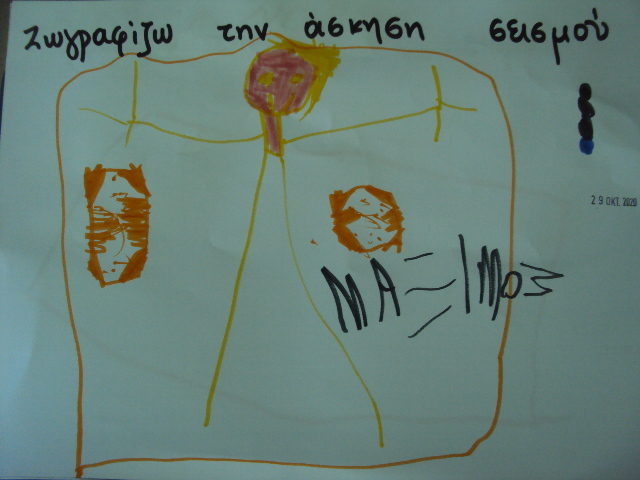 Ζωγραφίζω την άσκηση σεισμού
29 ΟΚΤ. 2020
ΜΑΞΙΜΟΣ